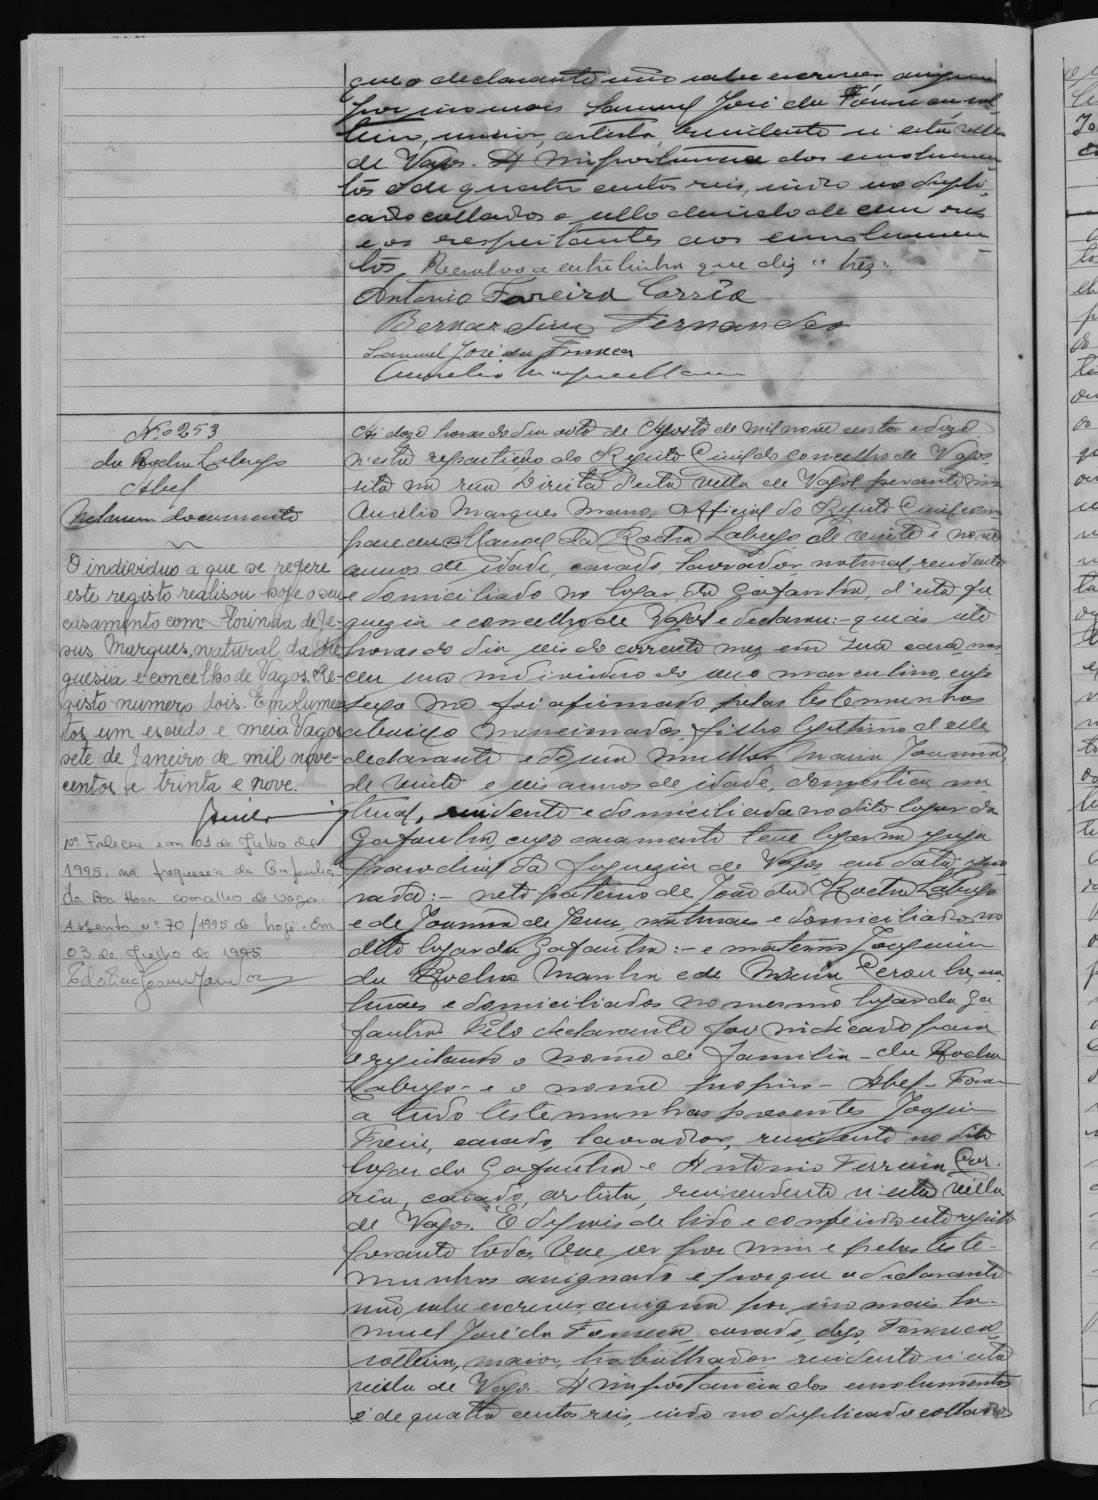 que o declarante não sabe escrever assigna
por isso mais Samuel José da Fonseca sol
teiro, maior, artista, residente n'esta villa
de Vagos. A importancia dos emolumen
tos é de quatro centos reis, indo no dupli
cado collados o sello devido de cem reis
e os respeitantes aos emolumen
tos. Resalvo a entrelinha que diz "trez"
Antonio Ferreira Corrêa
Bernardino Fernandes
Samuel José da Fonseca
Aurelio Marques Mano
Nº 253
da Rocha Labrego
Abel
Nenhum documento
O individuo a que se refere
este registo realisou hoje o seu
casamento com Florinda de Je-
sus Marques, natural da fre-
guesia e concelho de Vagos. Re-
gisto numero dois. Emolumen-
tos um escudo e meio Vagos
sete de Janeiro de mil nove-
centos e trinta e nove.
Nº Faleceu em 01 de Julho de
1995, na freguesia da Gafanha
da Boa Hora concelho de Vagos.
Assento nº 70/1995 de hoje. Em
03 de Julho de 1995
Ás doze horas do dia oito de Agosto de mil nove centos e doze
n'esta repartição do Registo Civil do concelho de Vagos
sita na rua Direita d'esta villa de Vagos perante mim
Aurelio Marques Mano, Official do Registo Civil com
pareceu Manoel da Rocha Labrego de vinte e nove
annos de idade, casado, lavrador natural residente
e domiciliado no logar da Gafanha, d'esta fre
guezia e concelho de Vagos e declarou:- que ás oito
horas do dia seis do corrente mez em sua casa, nas
ceu um individuo do sexo masculino, cujo
sexo me foi afirmado pelas testemunhas
abaixo mencionadas, filho legitimo d'elle
declarante e de sua mulher Maria Joanna,
de vinte e seis annos de idade, domestica, na
tural, residente e domiciliada no dito logar da
Gafanha, cujo casamento teve logar na igreja
parochial da freguezia de Vagos, em data igno
rada:- neto paterno de João da Rocha Labrego
e de Joanna de Jesus, naturaes e domiciliados no
dito logar da Gafanha:- e materno Joaquim
da Rocha Manha e de Maria na
turaes e domiciliados no mesmo logar da Ga
fanha. Pelo declarante foi indicado para
o registando o nome de familia - da Rocha
Labrego - e o nome proprio - Abel - Foram
a tudo testemunhas presentes Joaquim
Freire, casado, lavrador, residente no dito
logar da Gafanha e Antonio Ferreira Cor-
rêa, casado, artista, residente n'esta villa
de Vagos. E depois de lido e conferido este registo
perante todos, vae ser por mim e pelas teste-
munhas assignado e porque o declarante
não sabe escrever, assigna por isso mais Sa-
muel José da Fonseca, casado, digo, Fonseca
solteiro, maior, trabalhador residente n'esta
villa de Vagos. A importancia dos emolumentos
é de quatro centos reis, indo no duplicado collados